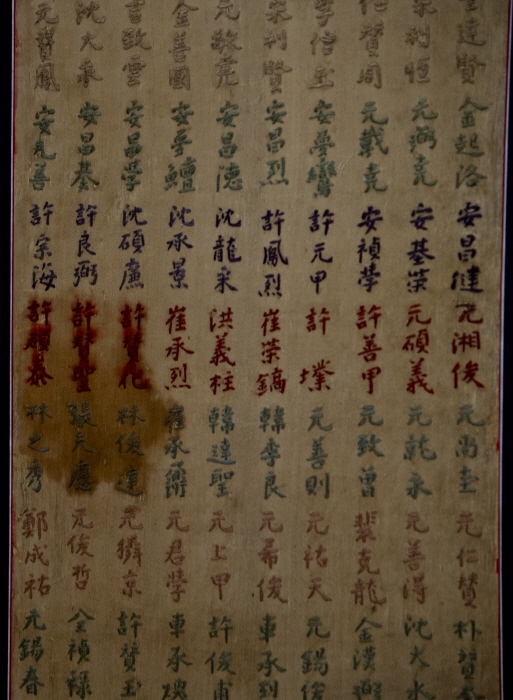 達賢 金起洛 安昌健 元湘俊 元尚奎 元仁贊 朴賛
宋利恒 元弼克 安基榮 元碩義 元就永 元善得 沈大水
任贊周 元戴克 安禎學 許善甲 元致曾 裴克龍 金漢弼
李信玉 安夢鸞 許元甲 許 元善則 元祜天 元錫俊
宋利賢 安昌烈 許鳳烈 崔榮鎬 韓季良 元希俊 車承到
元敬虎 安昌德 沈龍采 洪義柱 韓達聖 元上甲 許俊甫
金善國 安孝鱣 沈承景 崔承烈 崔承 元君學 車承
致雲 安昌學 沈碩廉 許賛化 林俊達 元獜京 許賛玉
沈大承 安昌基 許良弼 許賛聖 張天應 元俊哲 金禎祿
元賛鳳 安允善 許宗海 許碩泰 林之秀 鄭成祐 元錫春